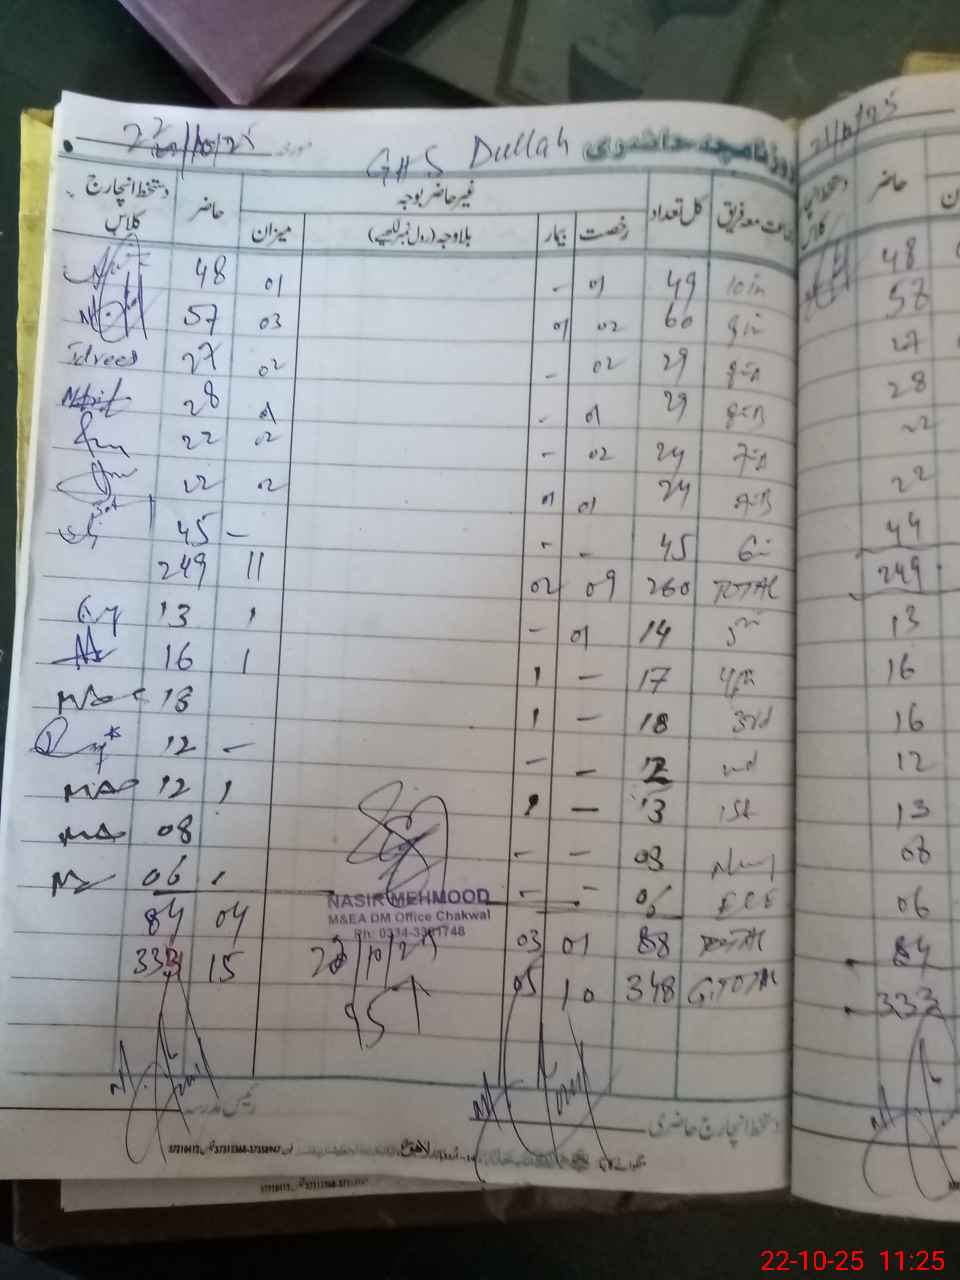 22/10/25 مورخہ GHS Dullah روزنامچہ حاضری
جماعت معہ فریق کل تعداد غیر حاضر بوجہ حاضر دستخط انچارج کلاس
رخصت بیمار بلاوجہ (رول نمبر لکھیے) میزان
10th 49 01 - 01 48
9th 60 02 01 03 57
8-A 29 02 - 02 27 Idrees
8-B 29 01 - 01 28
7-A 24 02 - 02 22
7-B 24 01 01 02 22
6th 45 - - - 45
TOTAL 260 09 02 11 249
5th 14 01 - 1 13
4th 17 - 1 1 16
3rd 18 - 1
2nd 12 - - - 12
1st 13 - 1 1 12
08 - - 08
ECE 06 - - 06
TOTAL 88 01 03 04 84
G.TOTAL 348 10 05 15 333
NASIR MEHMOOD
M&EA DM Office Chakwal
22/10/25
957
رئیس مدرسہ
دستخط انچارج حاضری
21/10/25
حاضر
48
58
27
28
22
22
44
249
13
16
16
12
13
08
06
84
333
22-10-25 11:25